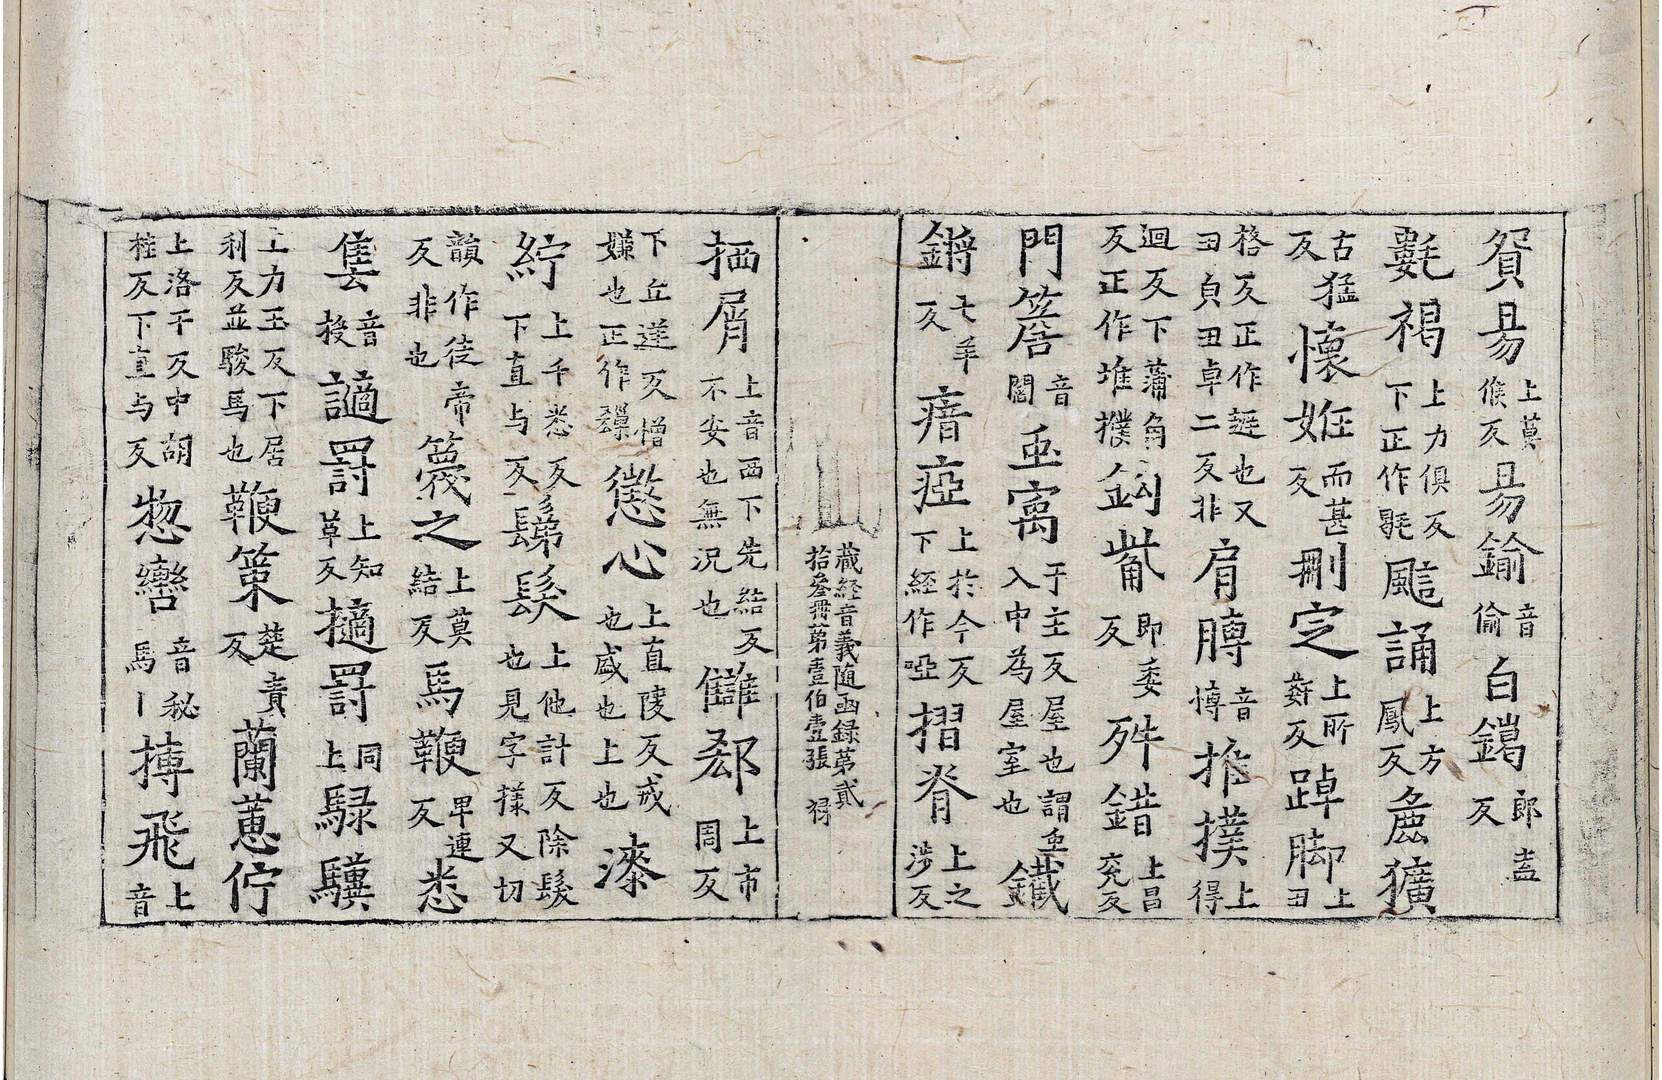 貿昜上莫候反昜鍮音偷白鑞郎盍反
氀褐上力俱反下正作毼颩誦上方鳳反麁獷
古猛反懷姙而甚反刪定上所姧反踔脚上
格反正作逴也又丑皃丑卓二反非肩膊音博推撲上得
迴反下蒲角反正作堆撲鈎觜即委反舛錯上昌兖反
門簷音閻宝寓于主反屋也謂宝入中為屋室也鐵
鏘七羊反瘖瘂上於今反下經作啞摺脊上之涉反
藏経音義随函録第貳
拾叄冊第壹伯壹張 得
栖屑上音西下先結反不安也無況也讎郄上市周反
下丘逆反憎嫌也正作𨞬懲心上直陵反戒也感也止也漆
紵上千悉反下直与反髢髮上他計反除髮也見字様又切
韻作徒帝反非也篾之上莫結反馬鞭卑連反悉
隻音投讁罰上知革反擿罰同上騄驥
上力玉反下居利反並駿馬也鞭策楚責反蘭蕙佇
上洛干反中胡桂反下直与反惣轡音秘馬丨搏飛上音